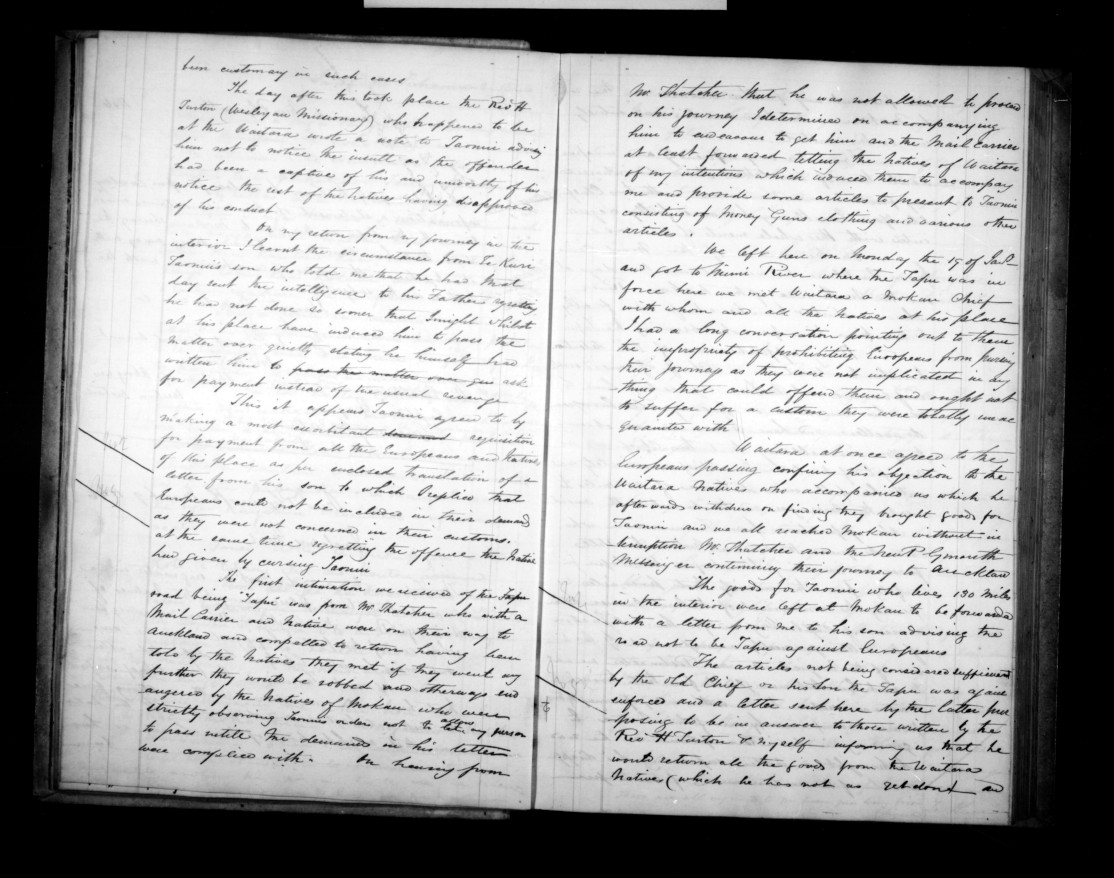 been customary in such cases
The day after this took place the Revd H
Turton (Wesleyan Missionary) who happened to be
at the Waitara wrote a note to Taonui advising
him not to notice the insult as the offender
had been a captive of his and unworthy of his
notice the rest of the Natives having disapproved
of his conduct
On my return from my journey in the
interior I learnt the circumstance from Te Kuri
Taonui's son who told me that he had that
day sent the intelligence to his Father regretting
he had not done so sooner that I might whilst
at his place have induced him to pass the
matter over quietly stating he himself had
written him to pass the matter over qui ask
for payment instead of the usual revenge
This it appears Taonui agreed to by
making a most exorbitant demand requisition
for payment from all the Europeans and Natives
of this place as per enclosed translation of a
letter from his son to which I replied that
Europeans could not be included in their demand
as they were not concerned in their customs.
at the same time regretting the offence the Native
had given by cursing Taonui
The first intimation we received of the Tapu
road being Tapu was from Mr Thatcher who with a
Mail Carrier and Native were on their way to
Auckland and compelled to return having been
told by the Natives they met if they went any
further they would be robbed and otherways end
angered by the Natives of Mokau who were
strictly observing Taonuis order not to let allow any person
to pass until the demands in his letter
were complied with. On hearing from
Mr Thatcher that he was not allowed to proceed
on his journey I determined on accompanying
him to endeavour to get him and the Mail Carrier
at least forwarded telling the Natives of Waitara
of my intentions which induced them to accompany
me and provide some articles to present to Taonui
consisting of Money Guns clothing and various other
articles.
We left here on Monday the 19 of
and got to Mimi River where the Tapu was in
force here we met Waitara a Mokau Chief
with whom and all the Natives at his place
I had a long conversation pointing out to them
the impropriety of prohibiting Europeans from pursuing
their journeys as they were not implicated in any
-thing that could offend them and ought not
to suffer for a custom they were totally unac
quainted with
Waitara at once agreed to the
Europeans passing confining his objection to the
Waitara Natives who accompanied us which he
afterwards withdrew on finding they brought goods for
Taonui and we all reached Mokau without in
terruption Mr Thatcher and the New P Lymouth
Messenger continuing their journey to Auckland
The goods for Taonui who lives 130 miles
in the interior were left at Mokau to be forwarded
with a letter from me to his son advising the
road not to be Tapu against Europeans
The articles not being considered sufficient
by the old Chief or his son the Tapu was again
enforced and a letter sent here by the latter pur
-posing to be in answer to those written by the
Revd H Turton & myself informing us that he
would return all the goods from the Waitara
Natives (which he has not as yet done) and